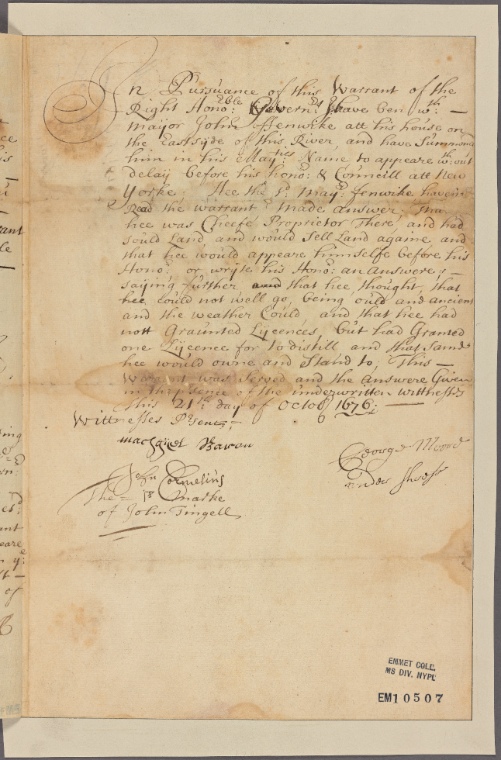 In Pursuance of this Warrant of the
Right Hono:able Govern:or I have ben w:th —
Major John Fenwike att his house on
the East syde of this River, and have Summoned
him in his Maj:ties Name to appeare w:th out
delay before his hono:r & Councill att New
Yorke. Hee the s:d Maj:r fenwike haveing
Read the warrant Made Answer, that
hee was Cheefe Proprietor There, and had
sould Land, and would sell Land againe, and
that hee would appeare himselfe before his
Hono:r or wryte his Hono:r an Answere; —
saying further, that hee thought, that
hee could not well go, being ould and ancient
and the weather Could, and that hee had
nott Graunted Lycences, but had Granted
one Lycence for to distill and that same
hee would owne and stand to, This —
Warrant was served and the Answere Given
in the presence of the underwritten wittnesses
This 21:th day of Octob:r 1676: —
Wittnesses Presenc:
Margret Bawon
George Moore
under Shreef
Jeſn Cornelius
The Marke
of John Tingell
EMMET COLL.
MS DIV. NYPL
EM10507